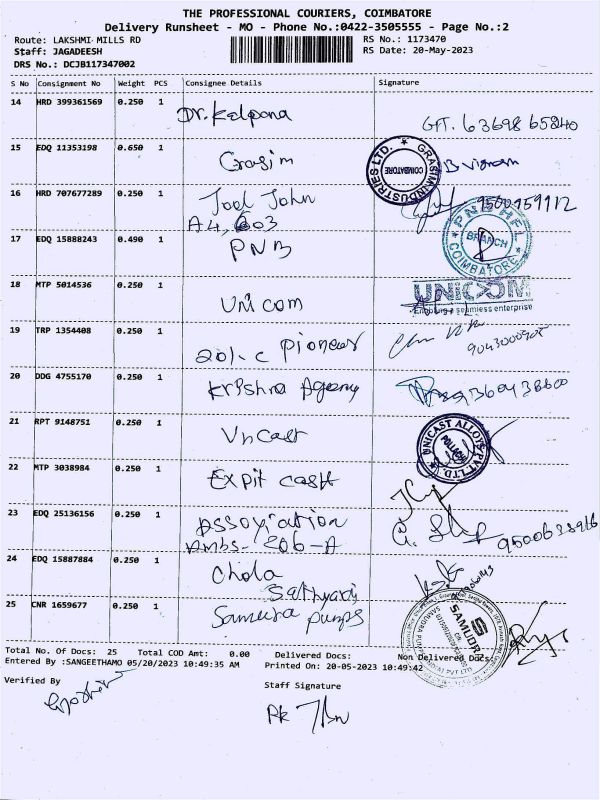 THE PROFESSIONAL COURIERS, COIMBATORE
Delivery Runsheet - MO - Phone No.:0422-3505555 - Page No.:2
Route: LAKSHMI MILLS RD RS No.: 1173470
Staff: JAGADEESH RS Date: 20-May-2023
DRS No.: DCJB117347002
S No Consignment No Weight PCS Consignee Details Signature
14 HRD 399361569 0.250 1 Dr. Kalpona
63698 65240
15 EDQ 11353198 0.650 1 Grasim
GRASIM INDUSTRIES LTD. COIMBATORE
16 HRD 707677289 0.250 1 Joel John 9500959112
A4, 603
17 EDQ 15888243 0.490 1 PNB
PNBHFL BRANCH COIMBATORE
18 MTP 5014536 0.250 1 Unicom
UNICOM
Enabling a seamless enterprise
19 TRP 1354408 0.250 1 201-C Pioneer
20 DDG 4755170 0.250 1 Krishna Agency
21 RPT 9148751 0.250 1 Unicast
UNICAST ALLOYS PVT. LTD. POLLACHI
22 MTP 3038984 0.250 1 Expit cash
23 EDQ 25136156 0.250 1 Association 9500638916
Ambs-206-A
24 EDQ 15887884 0.250 1 Chola
25 CNR 1659677 0.250 1 Samudra pumps
SAMUDRA
Total No. Of Docs: 25 Total COD Amt: 0.00 Delivered Docs: Non Delivered Docs:
Entered By :SANGEETHAMO 05/20/2023 10:49:35 AM Printed On: 20-05-2023 10:49:42
Verified By
Staff Signature